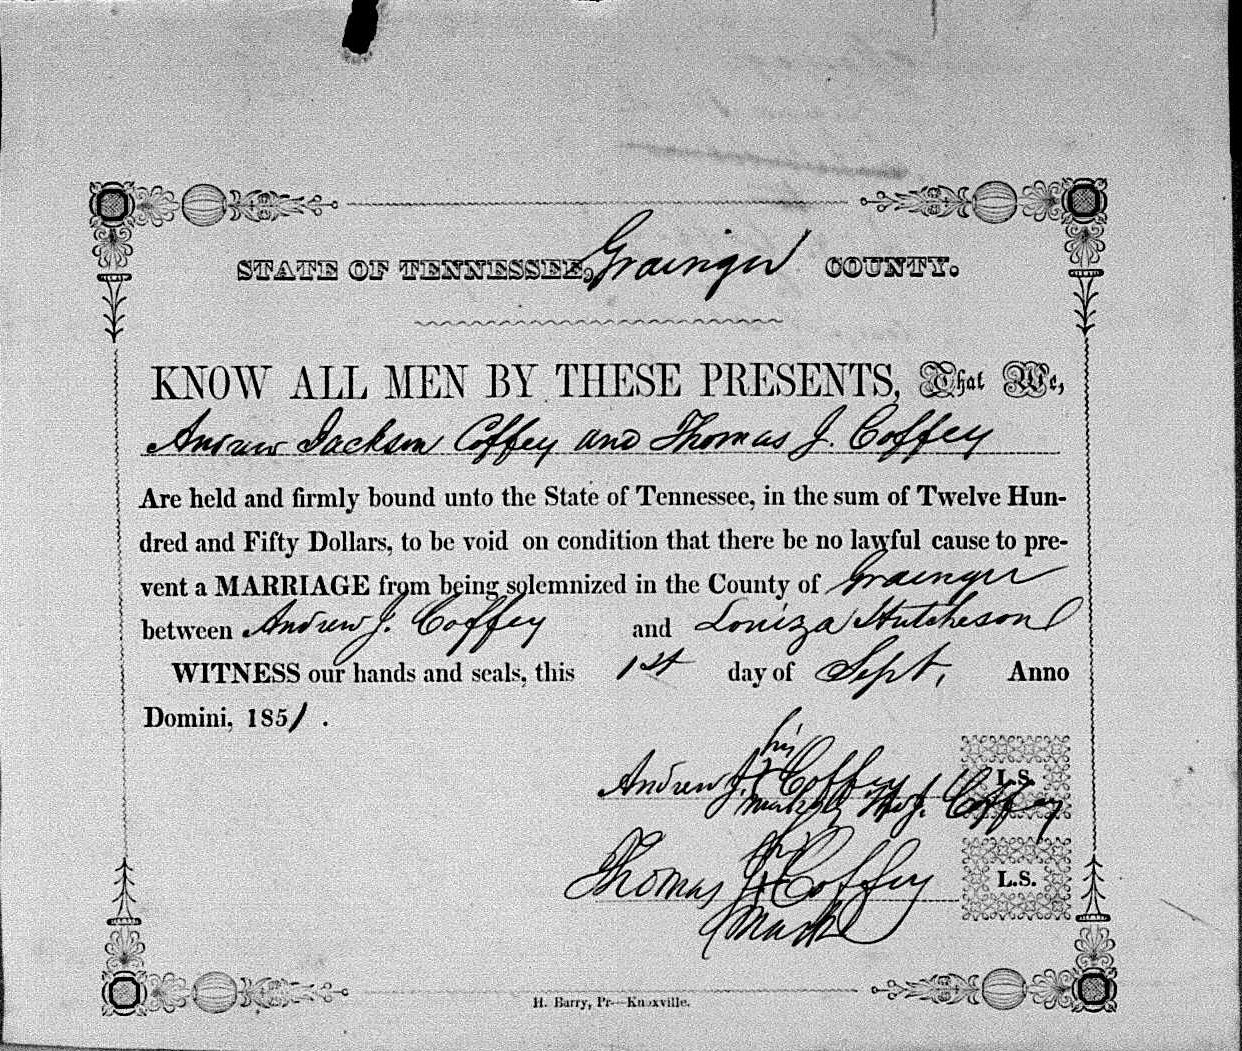 STATE OF TENNESSEE, Grainger COUNTY.
KNOW ALL MEN BY THESE PRESENTS, That We,
Andrew Jackson Coffey and Thomas J. Coffey
Are held and firmly bound unto the State of Tennessee, in the sum of Twelve Hun-
dred and Fifty Dollars, to be void on condition that there be no lawful cause to pre-
vent a MARRIAGE from being solemnized in the County of Grainger
between Andrew J. Coffey and Louiza Hutcheson
WITNESS our hands and seals, this 1st day of Sept, Anno
Domini, 1851 .
his
Andrew J. + Coffey L.S.
mark Tho J. Coffey
his
Thomas J + Coffey L.S.
mark
H. Barry, Pr—Knoxville.